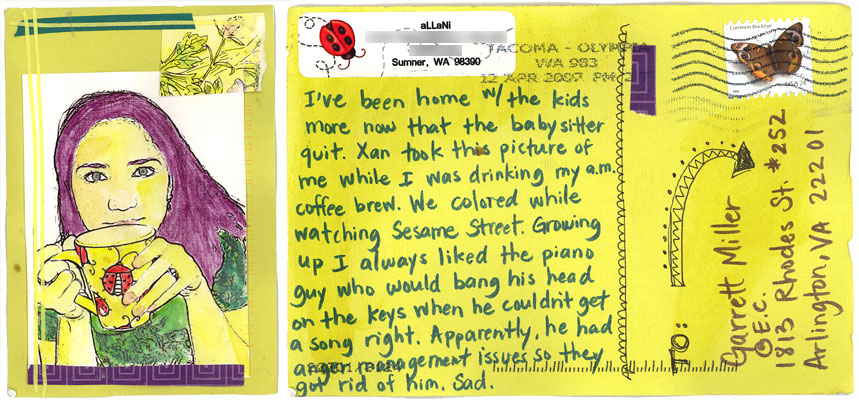 aLLaNi
Sumner, WA 98390
TACOMA - OLYMPIA
WA 983
12 APR 2007 PM
Common Buckeye
USA 24
I've been home w/ the kids
more now that the babysitter
quit. Xan took this picture of
me while I was drinking my a.m.
coffee brew. We colored while
watching Sesame Street. Growing
up I always liked the piano
guy who would bang his head
on the keys when he couldn't get
a song right. Apparently, he had
anger management issues so they
got rid of him. Sad.
TO:
Garrett Miller
O.E.C.
1813 Rhodes St. #252
Arlington, VA 22201